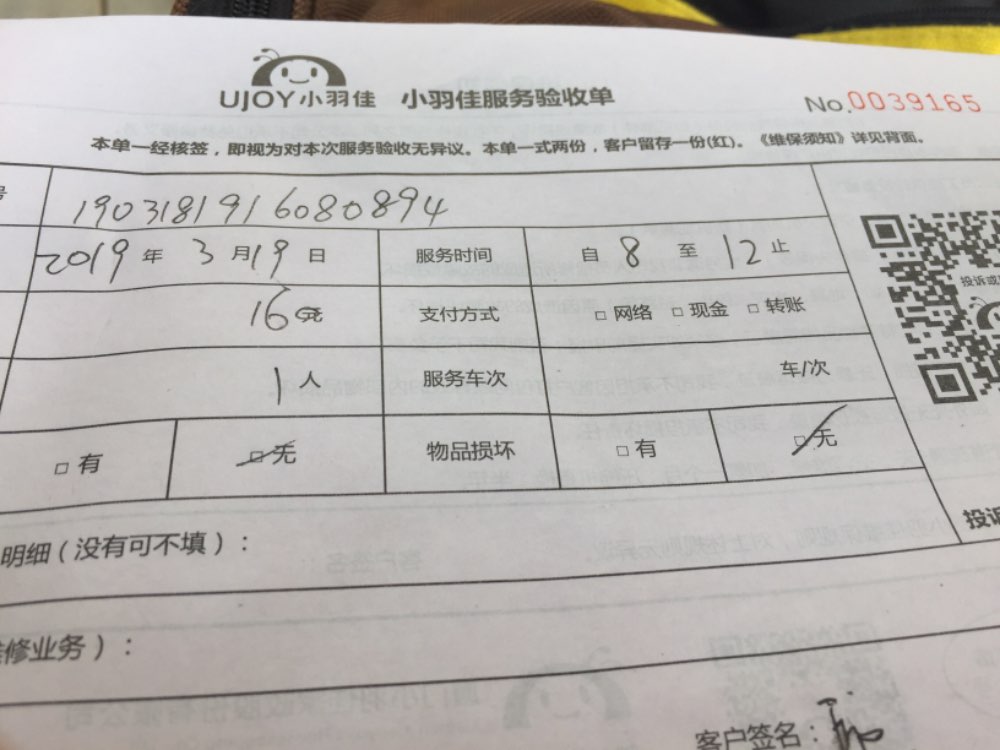 UJOY小羽佳 小羽佳服务验收单 No.0039165
本单一经核签，即视为对本次服务验收无异议。本单一式两份，客户留存一份(红)。《维保须知》详见背面。
号 1903181916080894
2019年3月19日 服务时间 自8至12止
16元 支付方式 □网络 □现金 □转账
1人 服务车次 车/次
□有 □无 物品损坏 □有 □无
明细（没有可不填）：
维修业务）：
客户签名：
投诉或
投诉